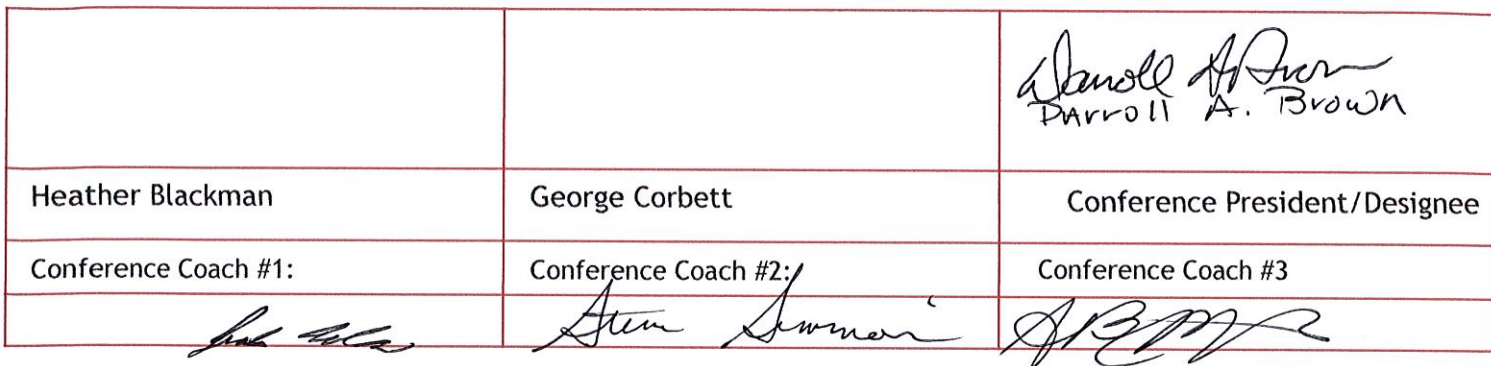 Darroll A. Brown
Darroll A. Brown
Heather Blackman
George Corbett
Conference President/Designee
Conference Coach #1:
Conference Coach #2:
Conference Coach #3
Steve